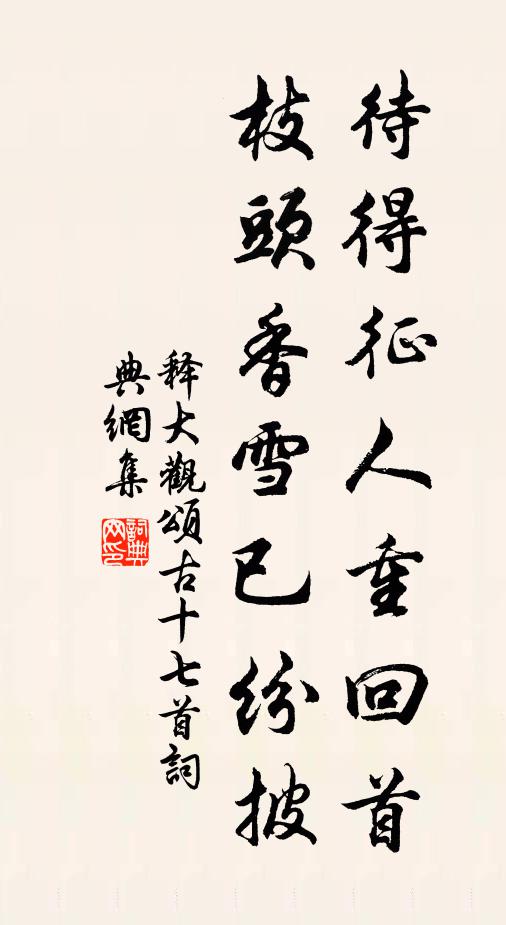 待得征人重回首
枝頭香雪已紛披
释大觀頌古十七首詞
典網集
詞典
网印